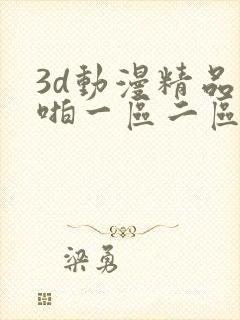 3d動漫精品
啪一區二區
梁勇